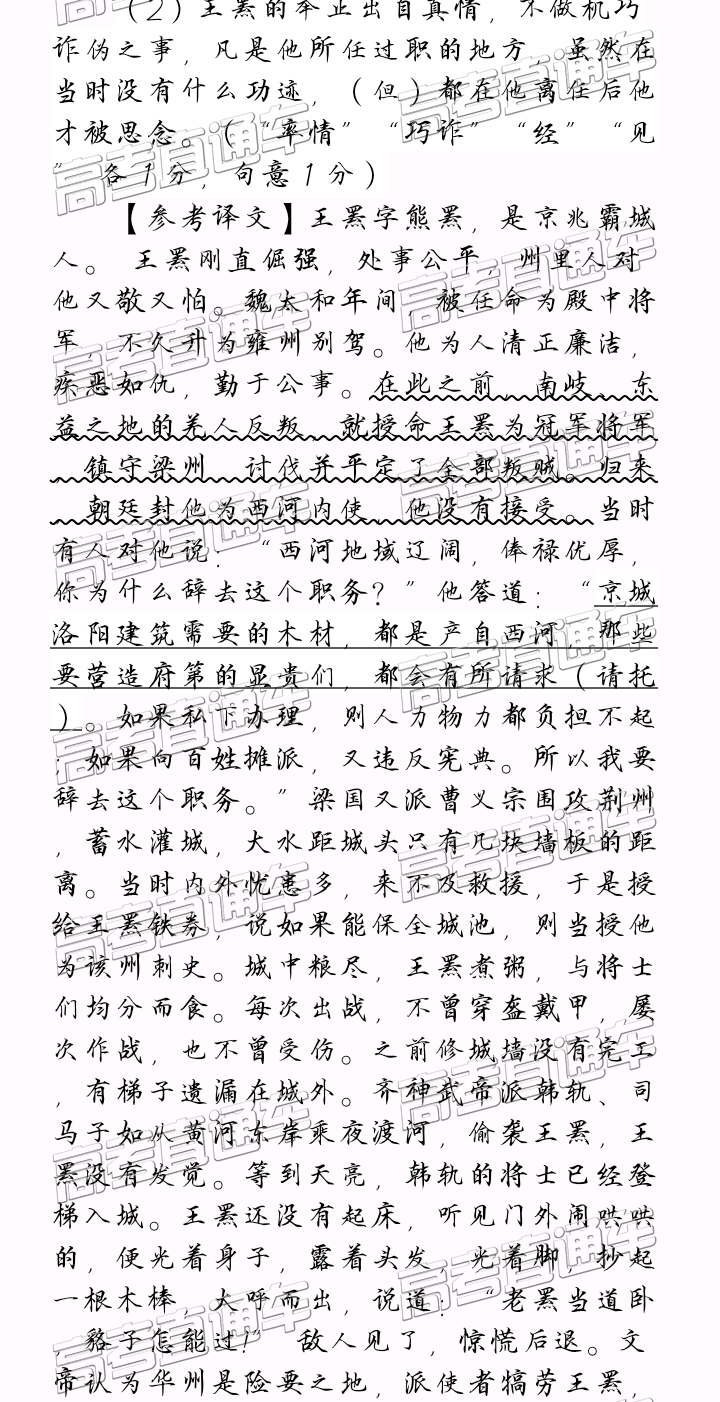 （2）王罴的本正出自真情，不做机巧
诈伪之事，凡是他所任过职的地方，虽然在
当时没有什么功迹，（但）都在他离任后他
才被思念。（“率情”“巧诈”“经”“见
”各1分，句意1分）
【参考译文】王罴字熊罴，是京兆霸城
人。 王罴刚直倔强，处事公平，州里人对
他又敬又怕。魏太和年间，被任命为殿中将
军，不久升为雍州别驾。他为人清正廉洁，
疾恶如仇，勤于公事。在此之前，南岐、东
益之地的羌人反叛，就授命王罴为冠军将军
，镇守梁州，讨伐并平定了全部叛贼。归来
，朝廷封他为西河内使，他没有接受。当时
有人对他说：“西河地域辽阔，俸禄优厚，
你为什么辞去这个职务？”他答道：“京城
洛阳建筑需要的木材，都是产自西河，那些
要营造府第的显贵们，都会有所请求（请托
）。如果私下办理，则人力物力都负担不起
；如果向百姓摊派，又违反宪典。所以我要
辞去这个职务。”梁国又派曹义宗围攻荆州
，蓄水灌城，大水距城头只有几块墙板的距
离。当时内外忧患多，来不及救援，于是授
给王罴铁券，说如果能保全城池，则当授他
为该州刺史。城中粮尽，王罴煮粥，与将士
们均分而食。每次出战，不曾穿盔戴甲，屡
次作战，也不曾受伤。之前修城墙没有完工
，有梯子遗漏在城外。齐神武帝派韩轨、司
马子如从黄河东岸乘夜渡河，偷袭王罴，王
罴没有发觉。等到天亮，韩轨的将士已经登
梯入城。王罴还没有起床，听见门外闹哄哄
的，便光着身子，露着头发，光着脚，抄起
一根木棒，大呼而出，说道：“老罴当道卧
，貉子怎能过！” 敌人见了，惊慌后退。文
帝认为华州是险要之地，派使者犒劳王罴，
高考直通车